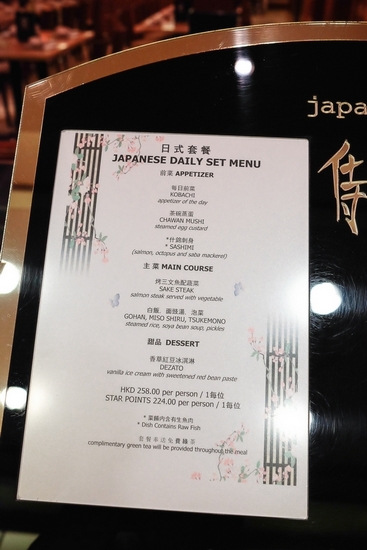 japa
侍
日式套餐
JAPANESE DAILY SET MENU
前菜 APPETIZER
每日前菜
KOBACHI
appetizer of the day
茶碗蒸蛋
CHAWAN MUSHI
steamed egg custard
*什錦刺身
* SASHIMI
(salmon, octopus and saba mackerel)
主菜 MAIN COURSE
烤三文魚配蔬菜
SAKE STEAK
salmon steak served with vegetable
白飯、麵豉湯、泡菜
GOHAN, MISO SHIRU, TSUKEMONO
steamed rice, soya bean soup, pickles
甜品 DESSERT
香草紅豆冰淇淋
DEZATO
vanilla ice cream with sweetened red bean paste
HKD 258.00 per person / 1每位
STAR POINTS 224.00 per person / 1每位
* 菜餚內含有生魚肉
* Dish Contains Raw Fish
套餐奉送免費綠茶
complimentary green tea will be provided throughout the meal